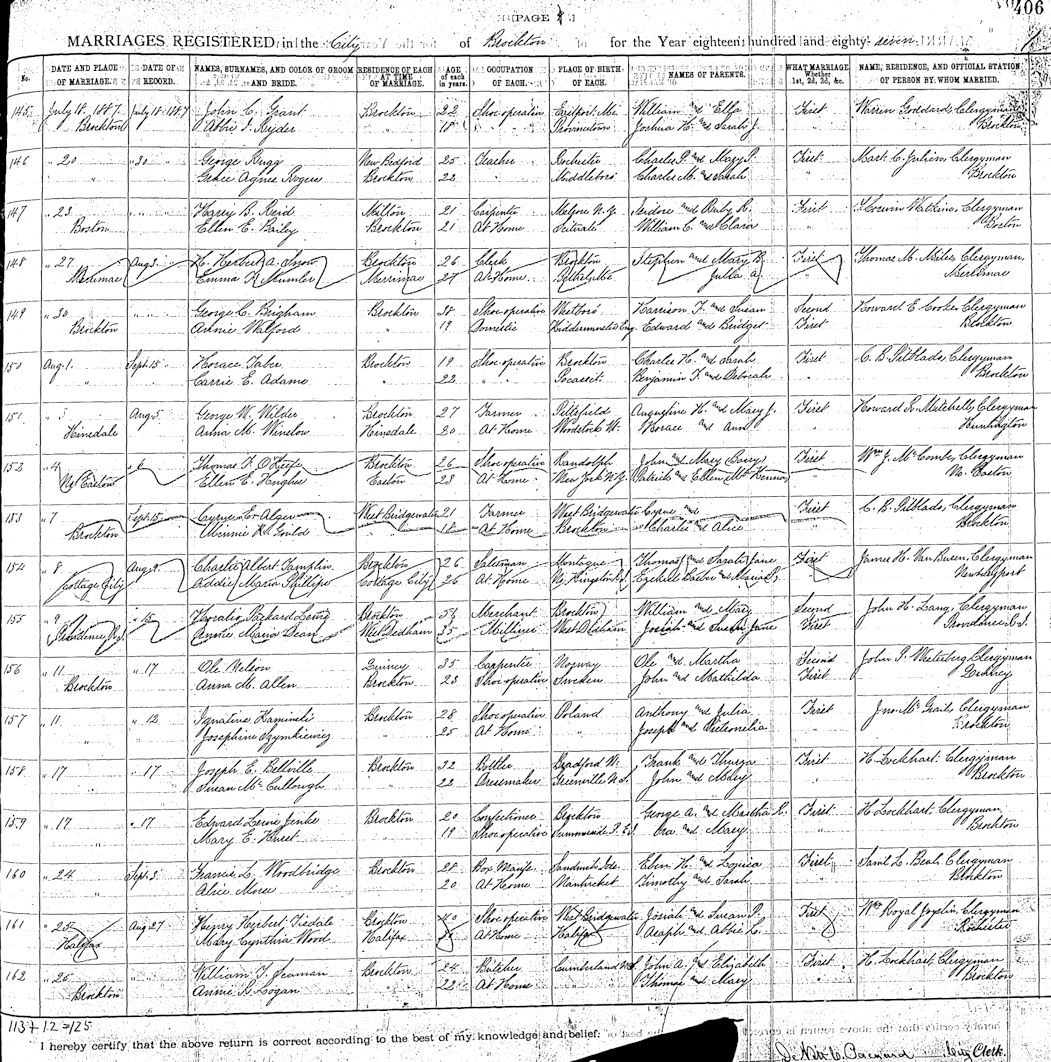 [PAGE ]
406
MARRIAGES REGISTERED in the City of Brockton for the Year eighteen hundred and eighty-seven
No. DATE AND PLACE OF MARRIAGE. DATE OF RECORD. NAMES, SURNAMES, AND COLOR OF GROOM AND BRIDE. RESIDENCE OF EACH AT TIME OF MARRIAGE. AGE of each in years. OCCUPATION OF EACH. PLACE OF BIRTH OF EACH. NAMES OF PARENTS. WHAT MARRIAGE, Whether 1st, 2d, 3d, &c. NAME, RESIDENCE, AND OFFICIAL STATION OF PERSON BY WHOM MARRIED.
145 July 18, 1887 July 18 1887 John C. Grant Brockton 22 Shoe operative William and Ella First Warren Goddard, Clergyman
Brockton Abbie F. Ryder " 18 " Joshua H. and Sarah J. " Brockton
146 " 20 " 30 George Rugg New Bedford 25 Teacher Rochester Charles P. and Mary P. First Clergyman
" Grace Agnes Rogers Brockton 22 Middleboro Charles M. and Sarah " Brockton
147 " 23 " " Harry B. Reid Milton 21 Carpenter N.Y. Isidore and Ruby R. First Watkins, Clergyman
Boston Ellen E. Baily Brockton 21 At Home Scituate William C. and Clara " Boston
148 " 27 Aug 3 H. Herbert A. Snow Brockton 26 Clerk Brockton Stephen and Mary B. First Thomas M. Miles Clergyman,
Merrimac Emma F. Merrimac 27 At Home Julia A. " Merrimac
149 " 30 " " George C. Brigham " 38 Shoe operative Westboro' Harrison F. and Susan Second Howard E. Cooke, Clergyman
Brockton Annie Walford " 19 Domestic Kidderminster Eng. Edward and Bridget First Brockton
150 Aug 1. Sept 15 Horace Faber Brockton 19 Shoe operative Brockton Charles H. and Sarah First C. B. Pitblado, Clergyman
" Carrie E. Adams " 22 " Pocasset Benjamin F. and Deborah " Brockton
151 " 3 Aug 5 George W. Wilder Brockton 27 Farmer Pittsfield Augustine H. and Mary J. First Howard R. Mitchell, Clergyman
Hinsdale Anna M. Winslow Hinsdale 20 At Home Woodstock Vt. Horace and Ann " Huntington
152 " 4 " 6 Thomas F. O'Keefe Brockton 26 Shoe operative Randolph John and Mary Barry First Wm J. McCombs, Clergyman
No. Easton Ellen E. Hughes Easton 23 At Home New York N.Y. Patrick and Ellen " No. Easton
153 " 7 Sept 15 Cyrus E. Alger West Bridgewater 21 Farmer West Bridgewater Cyrus and First C. B. Pitblado, Clergyman
Brockton Minnie K. Gould " 18 At Home Brockton Charles and Alice " Brockton
154 " 8 Aug 9 Charles Albert Tamplin Brockton 26 Salesman Montague Thomas and Sarah Jane First James H. Van Buren, Clergyman
Cottage City Addie Maria Phillips Cottage City 26 At Home No. Kingston " Newburyport
155 " 9 " 15 Horatio Packard Brockton Merchant Brockton William and Mary Second John H. Lang, Clergyman
Providence R.I. Annie Maria Dean West Dedham 35 Milliner West Dedham Josiah and Susan Jane First Providence R.I.
156 " 11 " 17 Ole Nelson Quincy 35 Carpenter Norway Ole and Martha Second John P. Westerberg, Clergyman
Brockton Anna M. Allen Brockton 23 Shoe operative Sweden John and Mathilda First Quincy
157 " 11 " 12 Ignatius Kaminski Brockton 28 Shoe operative Poland Anthony and Julia First Jno. McGrail, Clergyman
" Josephine Szymkiewicz " 25 At Home " Joseph and Petronelia " Brockton
158 " 17 " 17 Joseph E. Bellville Brockton 32 Bottler Bradford Vt. Frank and First H. Lockhart, Clergyman
" Susan McCullough " 22 Dressmaker Greenville N.S. John and Mary " Brockton
159 " 17 " 17 Edward Lewis Jenks Brockton 20 Confectioner Brockton George A. and Martha R. First H. Lockhart, Clergyman,
" Mary E. Hurst " 19 Shoe operative Summerside P.E.I. Ora and Mary " Brockton
160 " 24 Sept 3 Francis L. Woodbridge Brockton 28 Box Manufr. Eben H. and Louisa First Saml. L. Beal, Clergyman
" Alice Morse " 20 At Home Nantucket Timothy and Sarah " Brockton
161 " 25 Aug 27 Henry Herbert Tisdale Brockton 40 Shoe operative West Bridgewater Josiah and Susan P. First Wm Royal Joyslin, Clergyman
Halifax Mary Cynthia Wood Halifax At Home Halifax Asaph and Abbie L. " Rochester
162 " 26 " " William T. Seaman Brockton 24 Butcher Cumberland N.S. John A. and Elizabeth First H. Lockhart, Clergyman
Brockton Annie B. Logan " 22 At Home " Thomas and Mary " Brockton
113 + 12 = 125
I hereby certify that the above return is correct according to the best of my knowledge and belief.
De Witt C. Packard City Clerk.